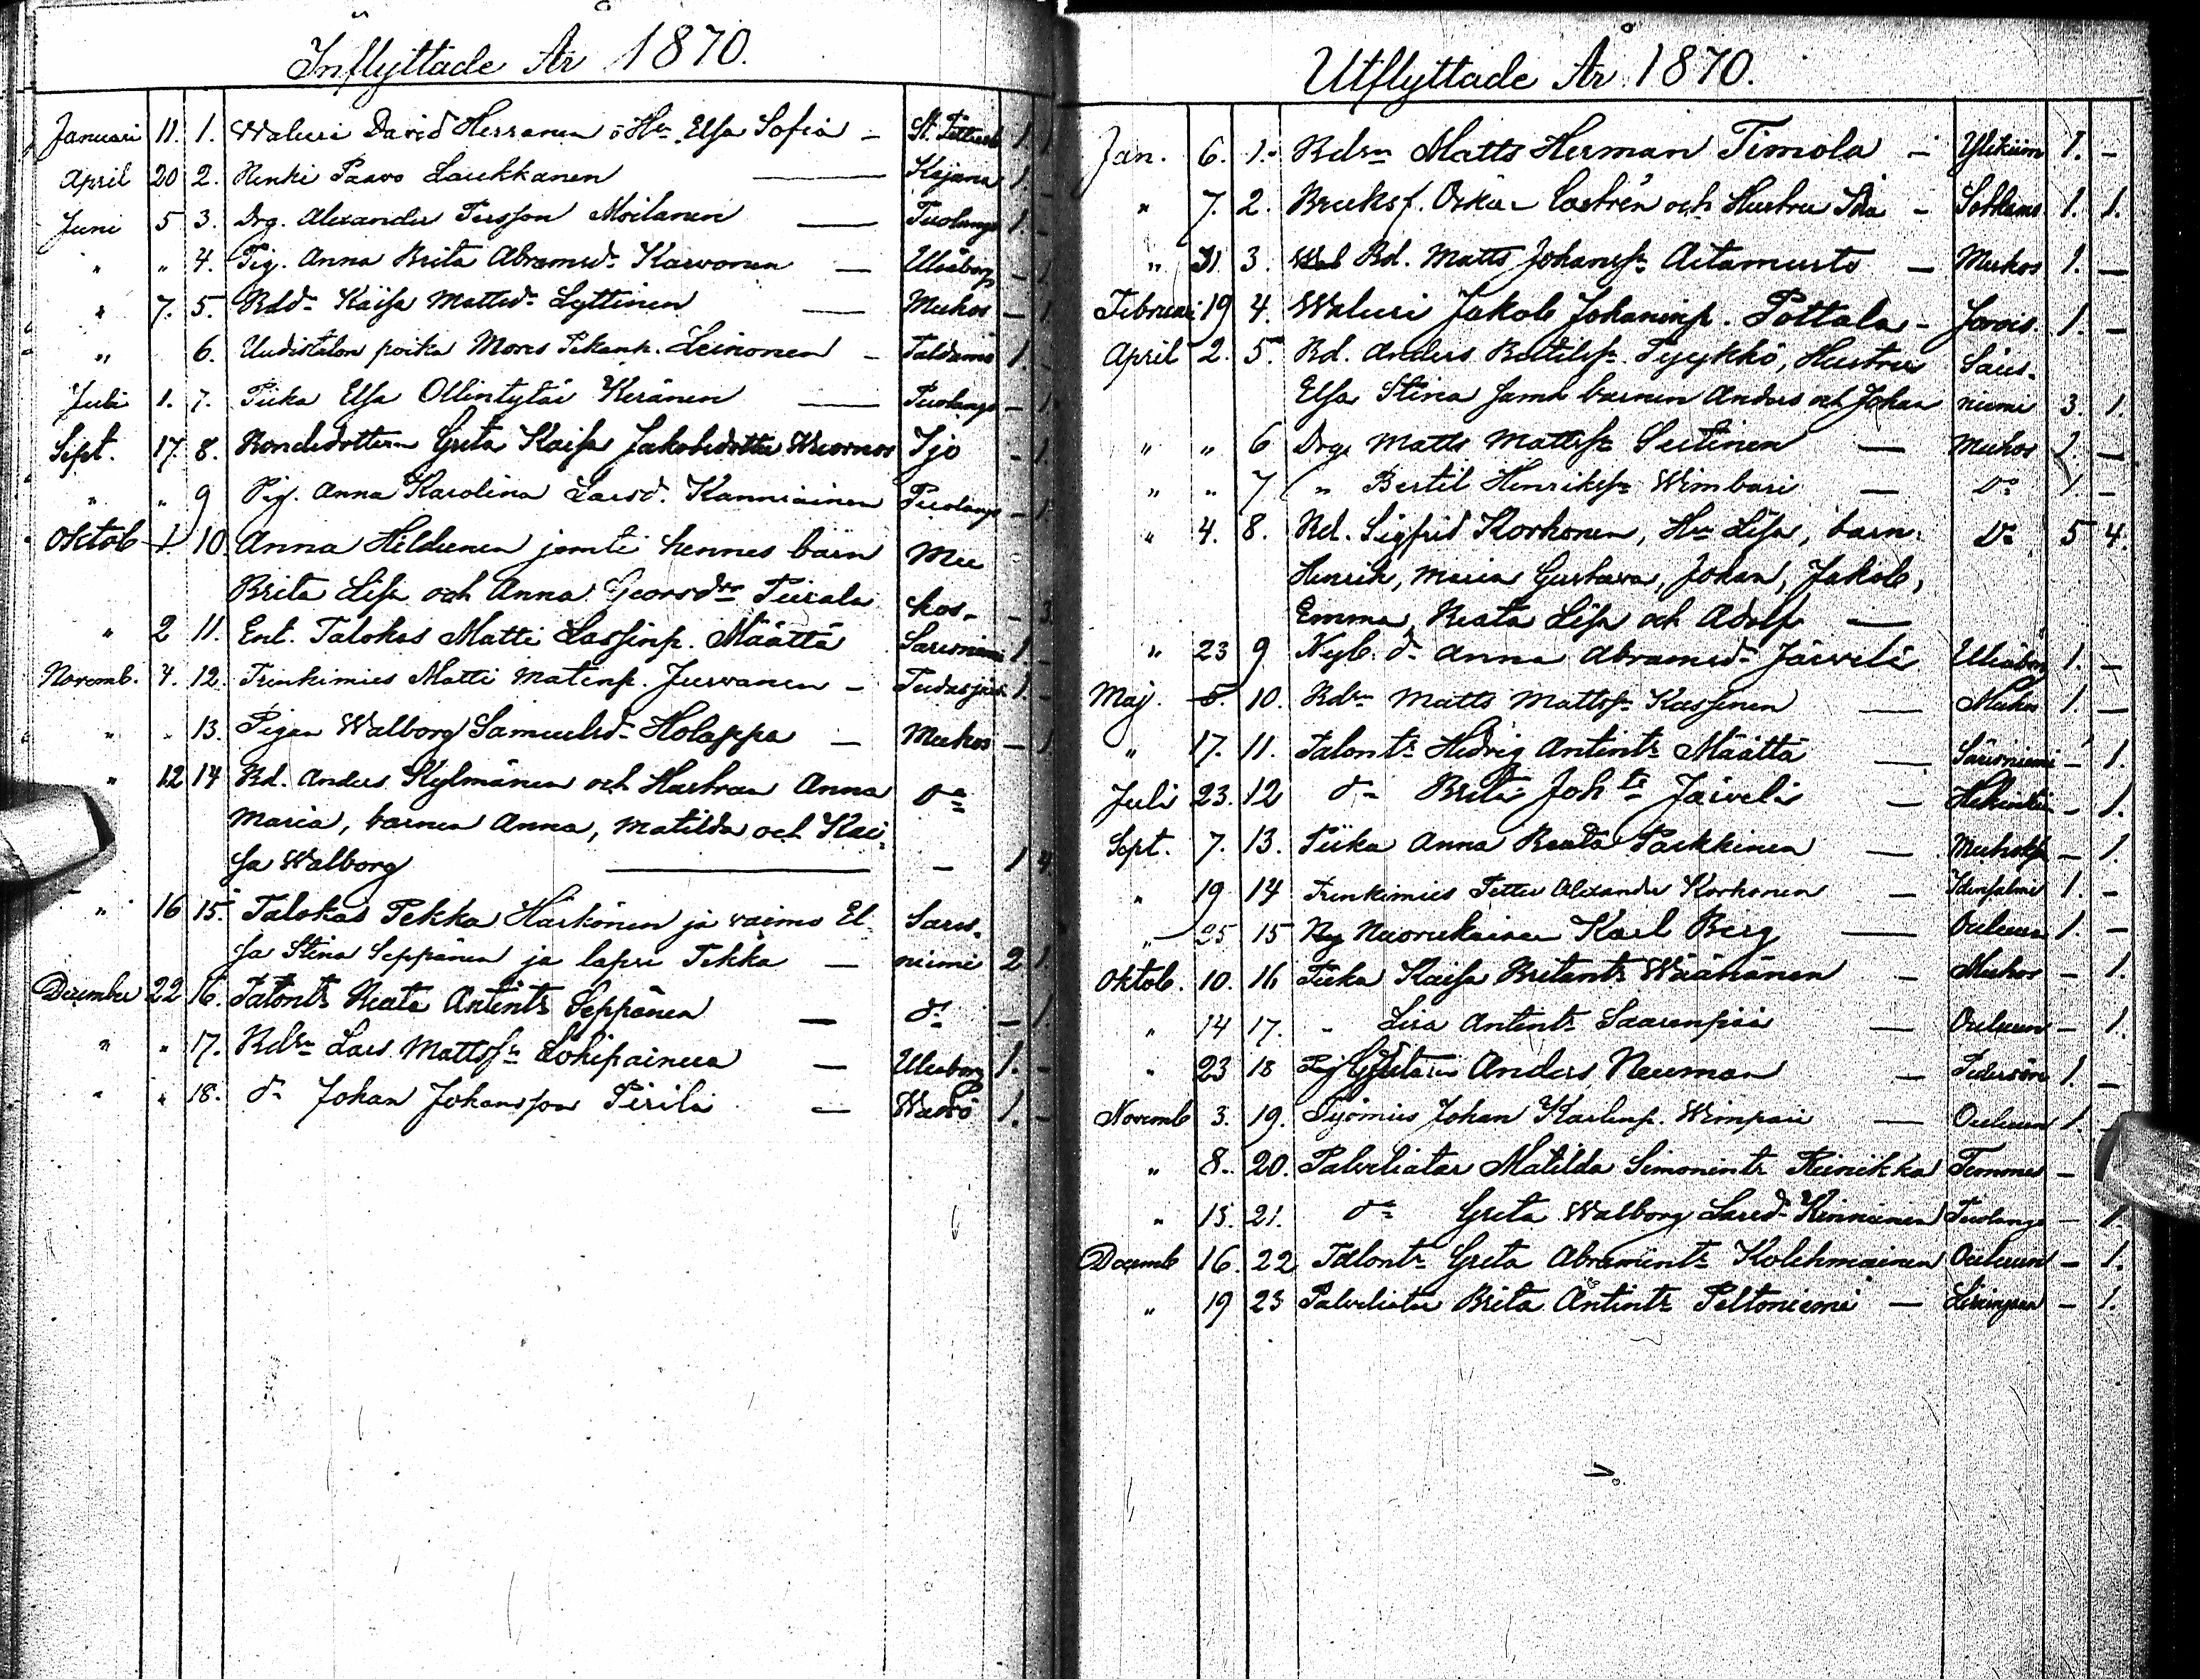 Inflyttade År 1870.
Januari 11. 1. Waluri David Herranen o Hu. Elsa Sofia — St. Petersb 1. 1.
April 20 2. Henki Paavo Laukkanen — Kajana 1. -
Juni 5 3. Drg. Alexander Persson Moilanen — Puolango 1. -
" " 4. Pig. Anna Brita Abramsdr Karvonen — Uleåborg - 1.
" 7. 5. Bddr Kaisa Mattsdr Lyttinen — Muhos - 1.
" 6. Uudistalon poika Mores Pekanp. Leinonen — 1. -
Juli 1. 7. Piika Elsa Ollintytär Keränen — Puolango - 1.
Sept. 17 8. Bondedottern Greta Kaisa Jakobsdotter Wuornos Ijo - 1.
" " 9 Pig. Anna Karolina Larsd. Kanniainen Puolango - 1.
Oktob 1 10. Anna Hildunen jemte hennes barn Mu
Brita Lisa och Anna Georsdtr Turala hos. - 3
" 2 11. Ent. Talokas Matti Lassinp. Määttä Säresniemi 1. -
Novemb. 4. 12. Trenkimies Matti Matinp. Juvanen — Pudasjärvi 1. -
" " 13. Pigan Walborg Samuelsdr Holappa — Muhos - 1.
" 12 14 Bd. Anders Kylmänen och Hustrun Anna do
Maria, barnen Anna, Matilda och Kai-
sa Walborg — 1 4
" 16 15. Talokas Pekka Härkönen ja vaimo El- Säres-
sa Stina Seppänen ja lapsi Pekka — niemi 2 1.
December 22 16. Talontr Beata Antintr Seppänen — do - 1.
" " 17. Bdsn Lars Mattssn Lohipainen — Uleaborg 1. -
" " 18. do Johan Johansson Pirilä — 1. -
Utflyttade År 1870.
Jan. 6. 1. Bdsn Matts Herman Timola — Ylikiim 1. -
" 7. 2. Bruksf. Oskar Castrén och Hustru Ida — Sotkamo 1. 1.
" 31 3. Bd. Matts Johanssn Aitamurto — Muhos 1. -
Februari 19 4. Waluri Jakob Johaninp. Pottala — Jorois. 1. -
April 2. 5. Bd. Anders Bertilssn Tyykkö, Hustru Säres-
Elsa Stina samt barnen Anders och Johan niemi 3 1.
" " 6 Drg. Matts Mattssn Leitinen — Muhos 1. -
" " 7 " Bertil Henrikssn Wimbari — Do 1. -
" 4. 8. Bd. Sigfrid Korhonen, Hu Lisa, barn: Do 5 4.
Henrik, Maria Gustava, Johan, Jakob,
Emma, Beata Lisa och Adolf —
" 23 9 Nyb. dr Anna Abramsdr Järvelä Uleåborg 1. -
Maj. 5. 10. Bdsn Matts Mattssn Kassinen — Muhos 1. -
" 17. 11. Talontr Hedvig Antintr Määttä — Säresniemi - 1.
Juli 23. 12 do Brita Joh tr Järveli — - 1.
Sept. 7. 13. Piika Anna Beata Parkkinen — Muhoksen - 1.
" 19 14 Trenkimies Petter Alexander Korhonen — Idensalmi 1. -
" 25 15 Nuorukainen Karl Berg — Ouluun 1. -
Oktob. 10. 16 Piika Kaisa Britantr Väänänen — Muhos - 1.
" 14 17. " Lisa Antintr Saarenpää — Ouluun - 1.
" 23 18 Anders Neuman — Pedersöre 1. -
Novemb 3. 19. Työmies Johan Kaslinp. Wimpari — Ouluun 1. -
" 8. 20. Palveliatar Matilda Simonintr Reinikka Temmes -
" 15. 21. do Greta Walborg Larsdr Kinnunen Puolango - 1.
Decemb 16. 22 Talontr Greta Abramintr Kolehmainen Ouluun - 1.
" 19 23 Palveliatar Brita Antintr Peltoniemi — - 1.